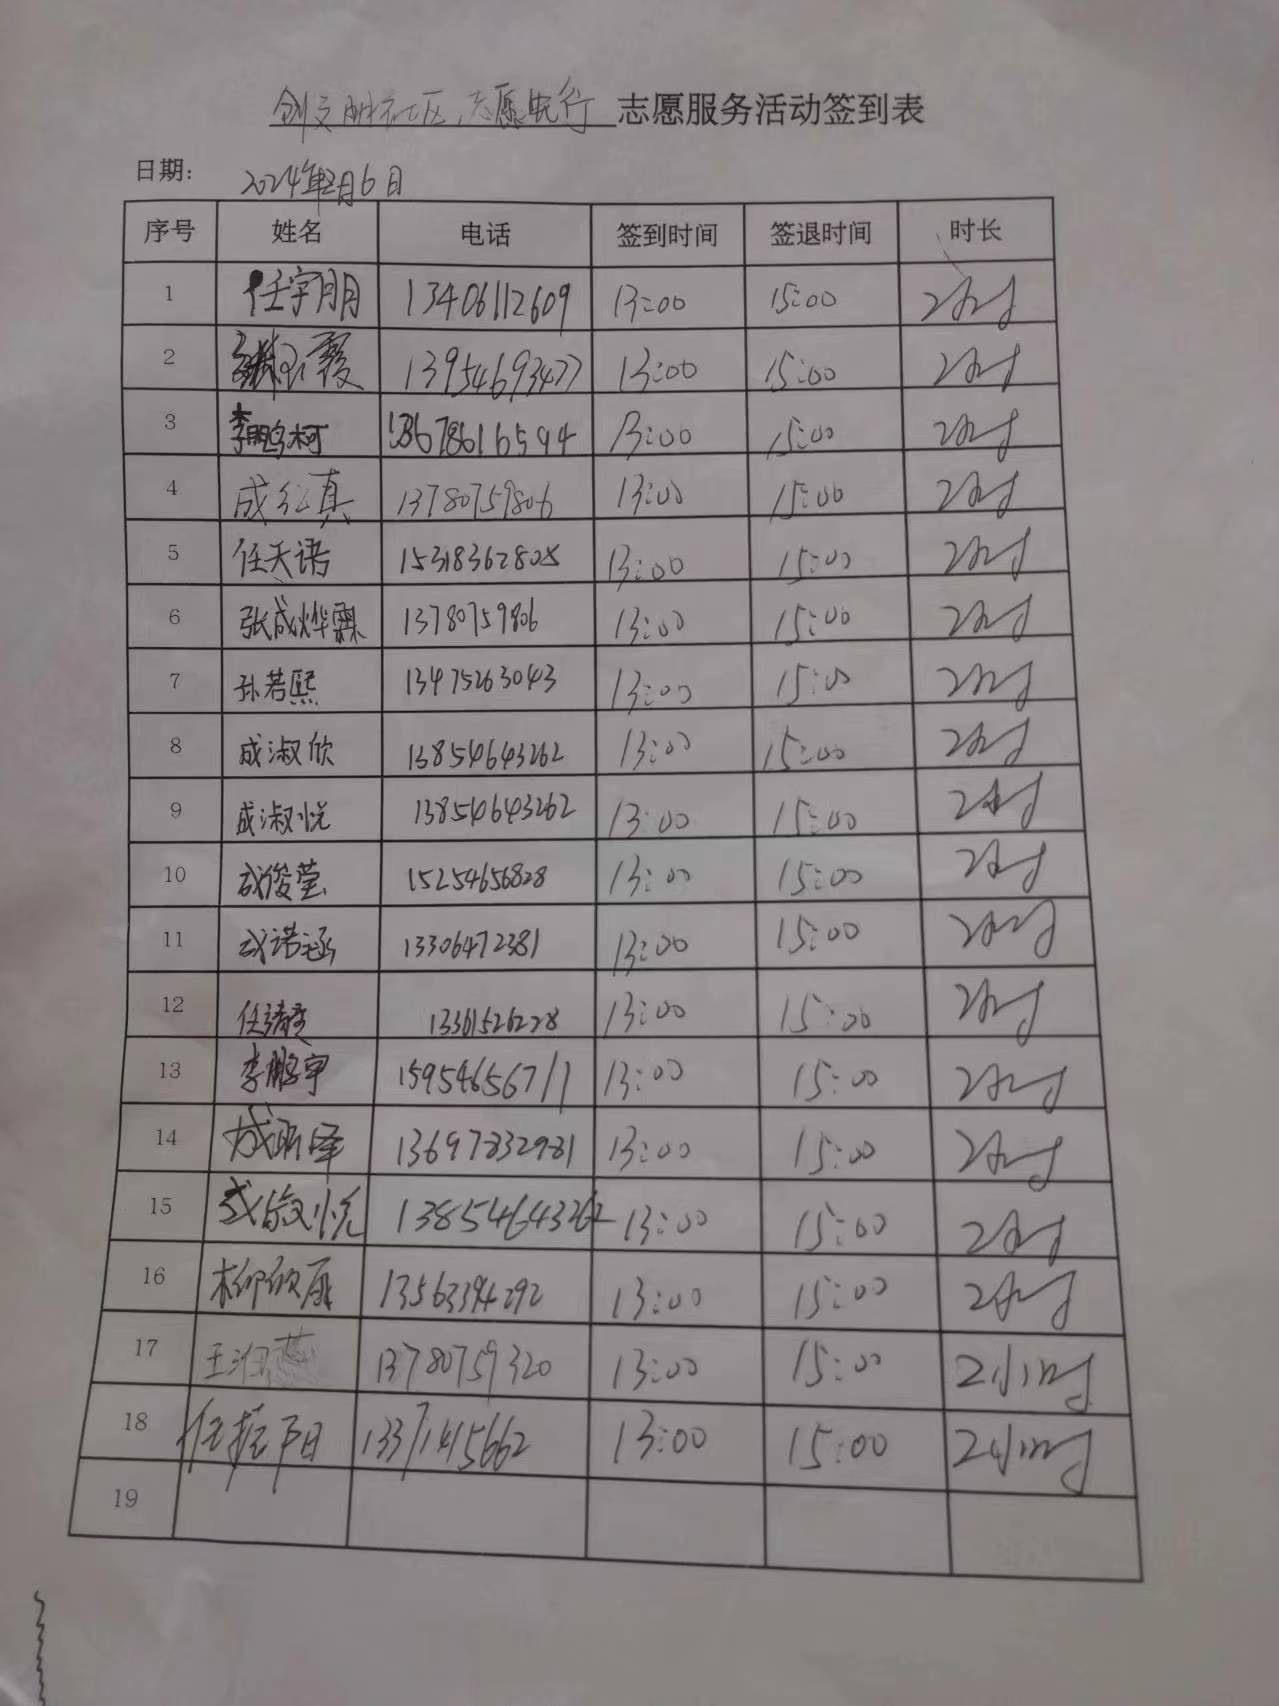 创文明社区,志愿先行 志愿服务活动签到表
日期: 2024年2月6日
序号 姓名 电话 签到时间 签退时间 时长
1 任宇朋 13406112609 13:00 15:00 2小时
2 霞 13954693477 13:00 15:00 2小时
3 李鹏柯 13678616594 13:00 15:00 2小时
4 成红真 13780759806 13:00 15:00 2小时
5 任天语 15318362808 13:00 15:00 2小时
6 张成烨霖 13780759806 13:00 15:00 2小时
7 孙若熙 13475263043 13:00 15:00 2小时
8 成淑欣 13854643262 13:00 15:00 2小时
9 成淑悦 13854643262 13:00 15:00 2小时
10 成俊莹 15254656828 13:00 15:00 2小时
11 成诺涵 13306472381 13:00 15:00 2小时
12 任 13361526228 13:00 15:00 2小时
13 李鹏宇 15954656711 13:00 15:00 2小时
14 成 泽 13697832981 13:00 15:00 2小时
15 成 悦 13854643262 13:00 15:00 2小时
16 柳欣 13563394292 13:00 15:00 2小时
17 王 13780759320 13:00 15:00 2小时
18 任振阳 13371415662 13:00 15:00 2小时
19